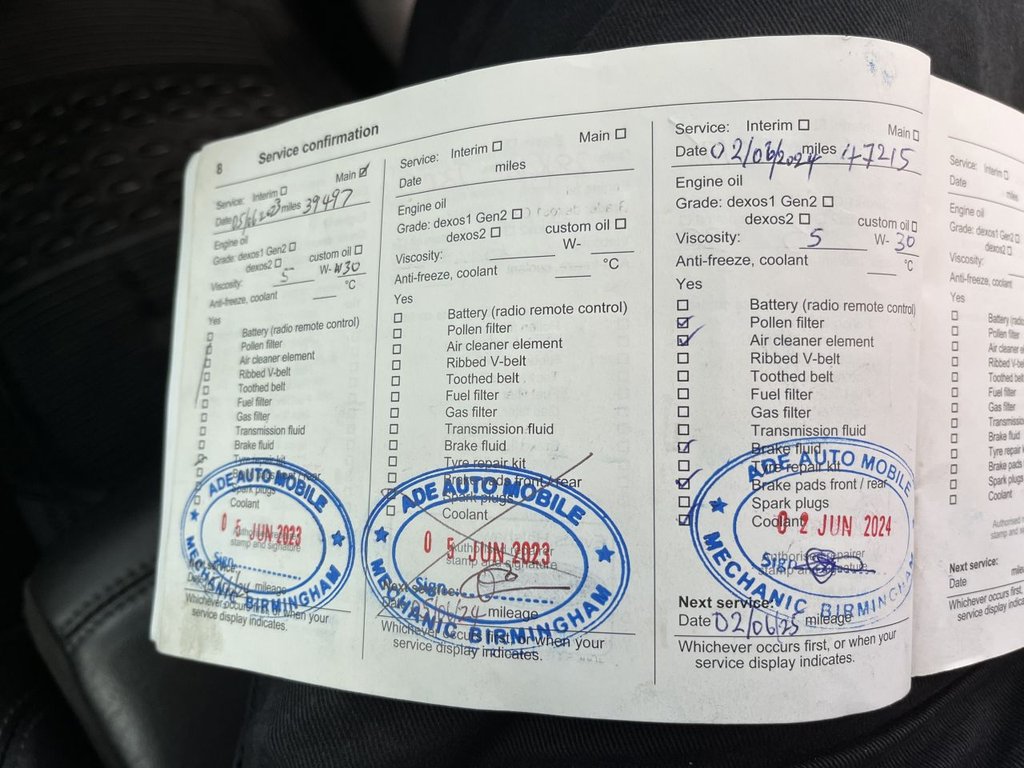 8 Service confirmation
Service: Interim Main
Date 05/06/2023 miles 39497
Engine oil
Grade: dexos1 Gen2
dexos2 custom oil
Viscosity: 5 W- W30
Anti-freeze, coolant °C
Yes
Battery (radio remote control)
Pollen filter
Air cleaner element
Ribbed V-belt
Toothed belt
Fuel filter
Gas filter
Transmission fluid
Brake fluid
Tyre repair kit
Spark plugs
Coolant
ADE AUTO MOBILE
05 JUN 2023
Authorised repairer
stamp and signature
Sign
MECHANIC BIRMINGHAM
mileage
Whichever occurs first, or when your
service display indicates.
Service: Interim Main
Date miles
Engine oil
Grade: dexos1 Gen2
dexos2 custom oil
Viscosity: W-
Anti-freeze, coolant °C
Yes
Battery (radio remote control)
Pollen filter
Air cleaner element
Ribbed V-belt
Toothed belt
Fuel filter
Gas filter
Transmission fluid
Brake fluid
Tyre repair kit
Brake pads front / rear
Spark plugs
Coolant
ADE AUTO MOBILE
05 JUN 2023
Authorised repairer
stamp and signature
Sign
MECHANIC BIRMINGHAM
Next service:
Date mileage
Whichever occurs first, or when your
service display indicates.
Service: Interim Main
Date 02/06/2024 miles 47215
Engine oil
Grade: dexos1 Gen2
dexos2 custom oil
Viscosity: 5 W- 30
Anti-freeze, coolant °C
Yes
Battery (radio remote control)
Pollen filter
Air cleaner element
Ribbed V-belt
Toothed belt
Fuel filter
Gas filter
Transmission fluid
Brake fluid
Tyre repair kit
Brake pads front / rear
Spark plugs
Coolant
ADE AUTO MOBILE
02 JUN 2024
Authorised repairer
stamp and signature
Sign
MECHANIC BIRMINGHAM
Next service:
Date 02/06/25 mileage
Whichever occurs first, or when your
service display indicates.
Service: Interim
Date miles
Engine oil
Grade: dexos1 Gen2
dexos2
Viscosity:
Anti-freeze, coolant
Yes
Battery
Pollen filter
Air cleaner
Ribbed V-belt
Toothed belt
Fuel filter
Gas filter
Transmission
Brake fluid
Tyre repair
Brake pads
Spark plugs
Coolant
Authorised
stamp and
Next service:
Date
Whichever occurs
service display